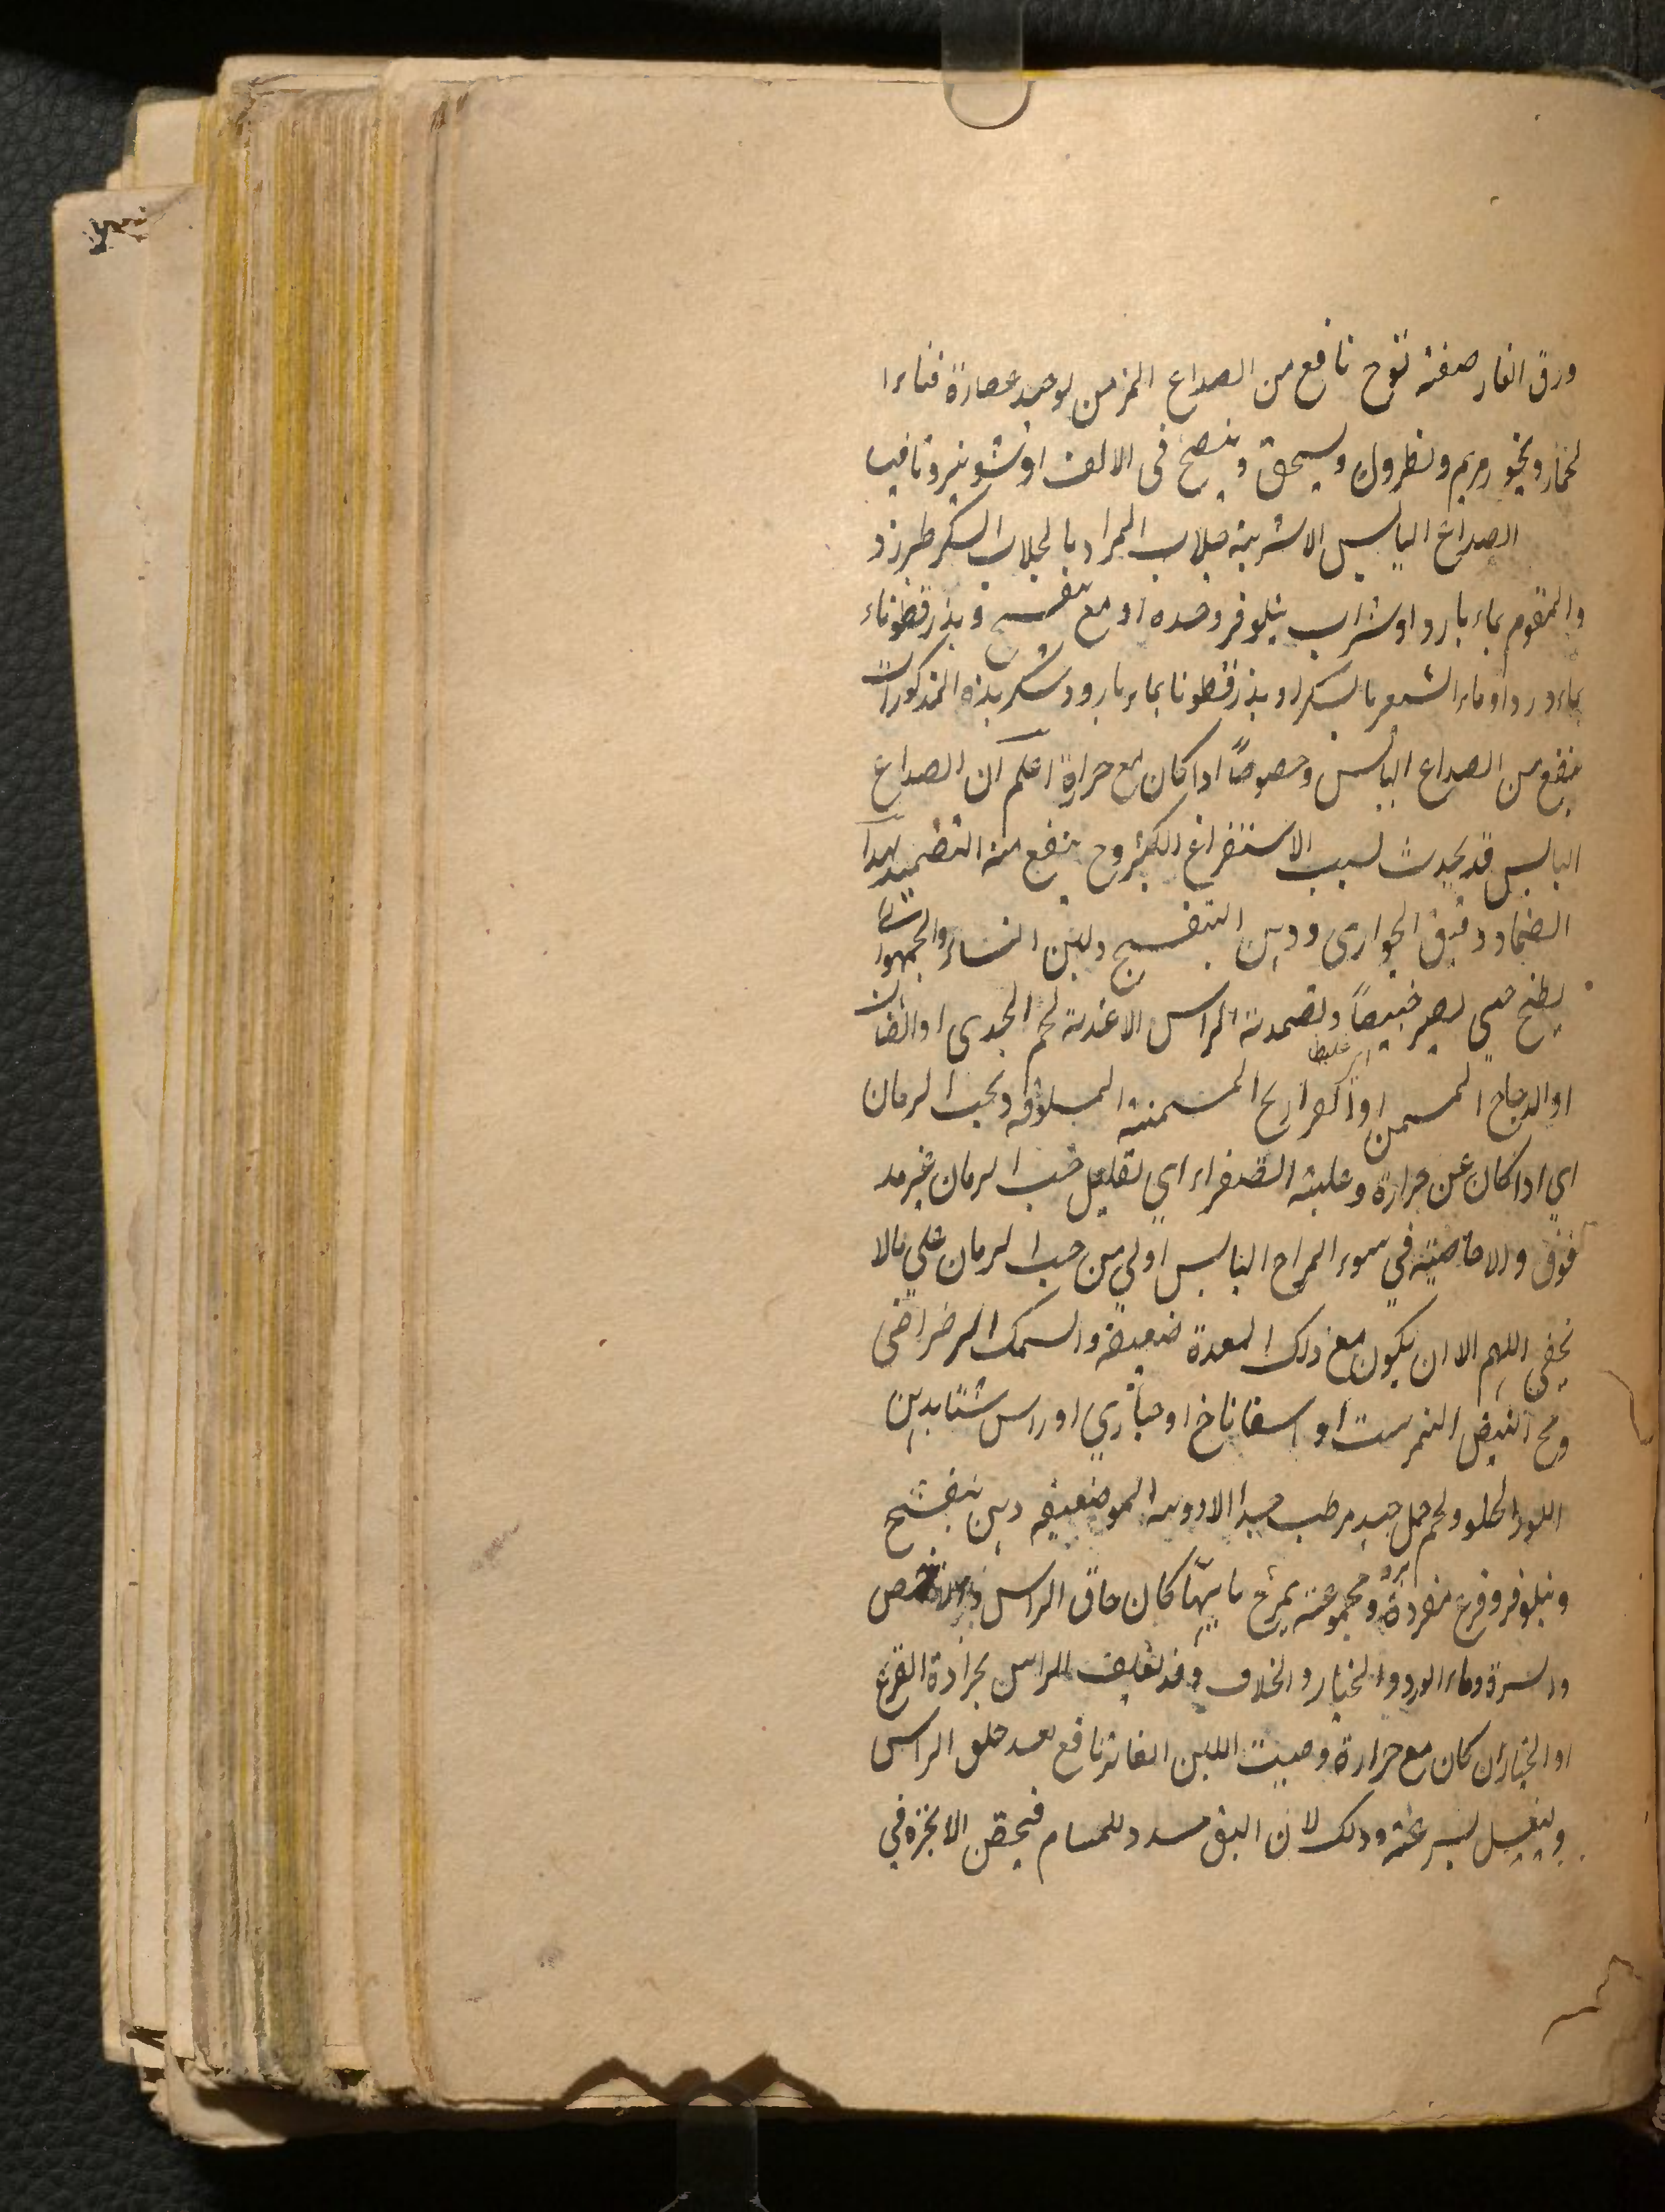 ورق الغار صفته نفوخ نافع من الصداع المزمن يوخد عصارة قثاء ا
لحمار وبخور مريم ونطرول ويسحق وينضح فى الانف او شونيز وثافيا
الصداع اليابس الاشربة جلاب المراد بالجلاب السكر طبرزد
والمقوم بماء بارد او شراب نيلوفر وحده او مع بنفسج و بذر قطوناء
بماء ورد او ماء الشعير بالسكر او بذر قطونا بماء بارد وسكر بذه المذكورات
ينفع من الصداع اليابس وخصوصًا اداكان مع حرارة اعلم ان الصداع
اليابس قد يحدث لسبب الاستفراغ الكثير وح ينفع منه التضميد بهدا
الضماد دقيق الحوارى ودهن البنفسج ولبن النساء
يطبخ حتي يصير خبيصًا وتضمد به الراس الاغذية لحم الجدى او الضان
او الدجاج المسمن او الفراريج المسمنة المسلوقه وبحب الرمان
اي اداكان عن حرارة وغلبة الصفراء اي تقليل حب الرمان غير مد
فوق والاحاصية في سوء المزاج اليابس اولي من حب الرمان علي مالا
يخفي اللهم الا ان يكون مع ذلك المعدة ضعيفة والسمك الرضراضى
ومح البيض النمرست او اسفاناخ او خبازي او راس شتا بدهن
اللوز الحلو ولحم حمل جيد مرطب جيدا الادوية الموضعيه دهن بنفسج
ونيلوفر وقرع مفردة ومجموعة يمرخ بايهّا كان حاق الراس
والسرة وماء الورد والخيار والخلاف وقد تغلف الراس بجرادة القرع
او الخيار ان كان مع حرارة وصبيت اللبن الفاتر نافع بعد حلق الراس
وليغسل بسرعة ودلك لان البق مسدد للمسام فيحقن الابخرة في